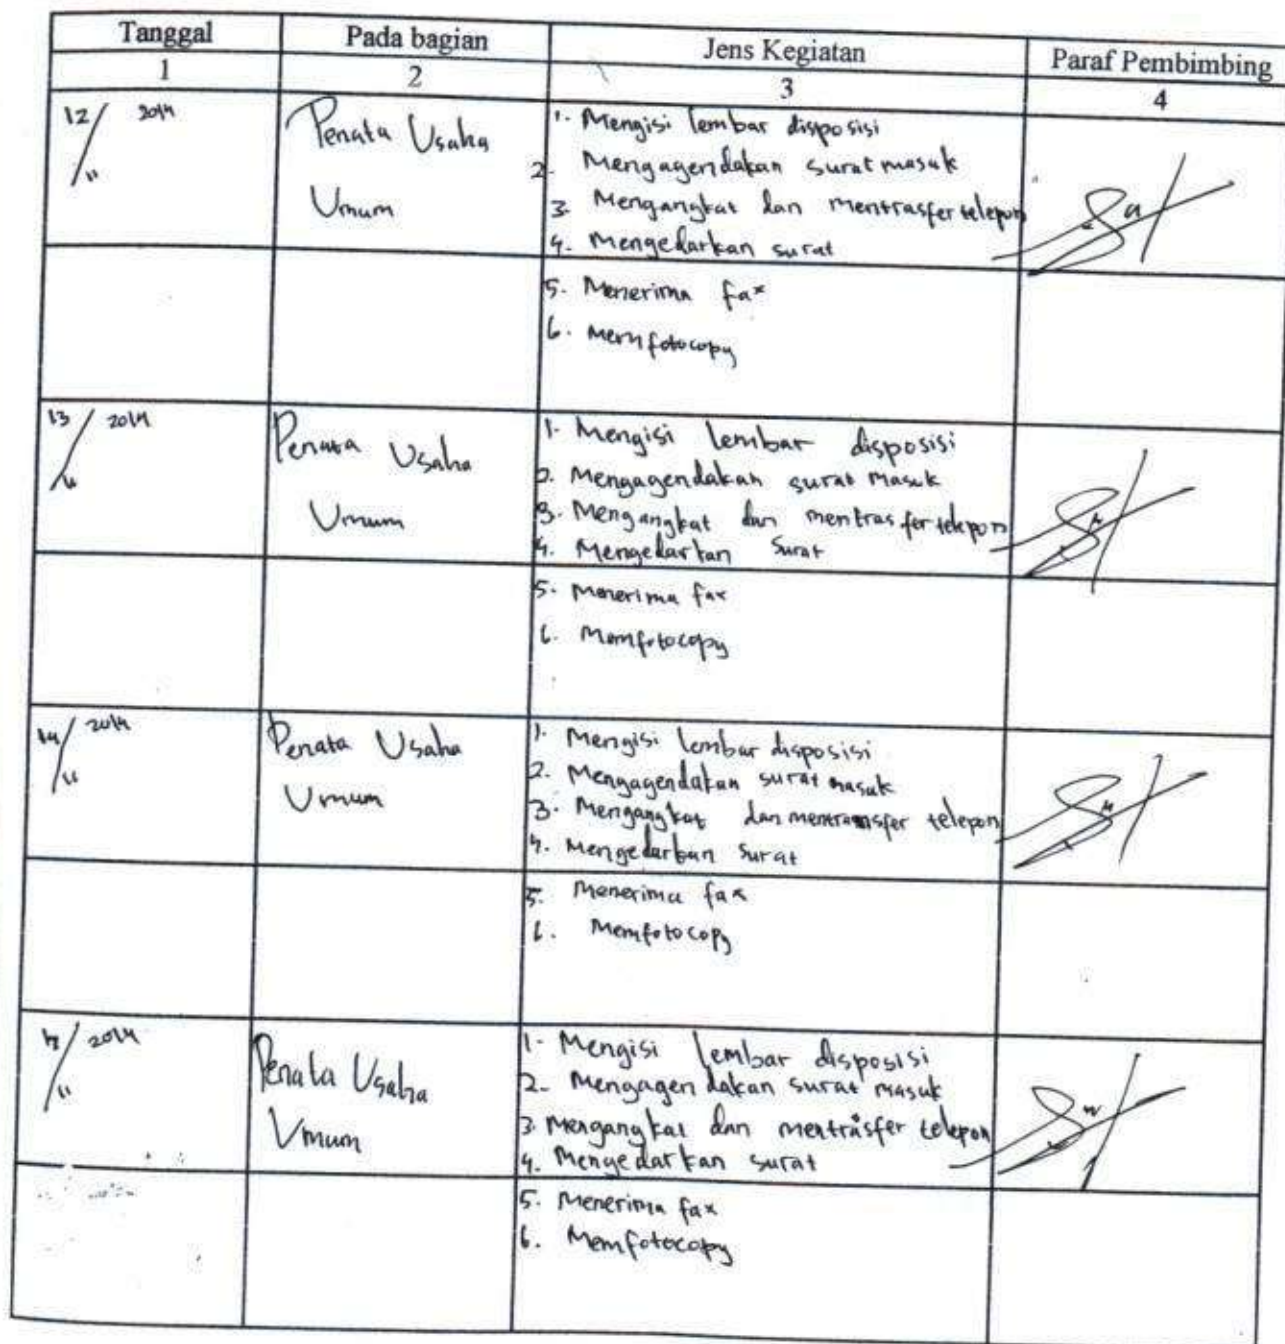 Tanggal Pada bagian Jens Kegiatan Paraf Pembimbing
1 2 3 4
12/11 2014
Penata Usaha
Umum
1. Mengisi lembar disposisi
2. Mengagendakan surat masuk
3. Mengangkat dan mentrasfer telepon
4. Mengedarkan surat
5. Menerima fax
6. Memfotocopy
13/11 2014
Penata Usaha
Umum
1. Mengisi lembar disposisi
2. Mengagendakan surat masuk
3. Mengangkat dan mentrasfer telepon
4. Mengedarkan surat
5. Menerima fax
6. Memfotocopy
14/11 2014
Penata Usaha
Umum
1. Mengisi lembar disposisi
2. Mengagendakan surat masuk
3. Mengangkat dan mentransfer telepon
4. Mengedarkan surat
5. Menerima fax
6. Memfotocopy
2014
Penata Usaha
Umum
1. Mengisi lembar disposisi
2. Mengagendakan surat masuk
3. Mengangkat dan mentrasfer telepon
4. Mengedarkan surat
5. Menerima fax
6. Memfotocopy